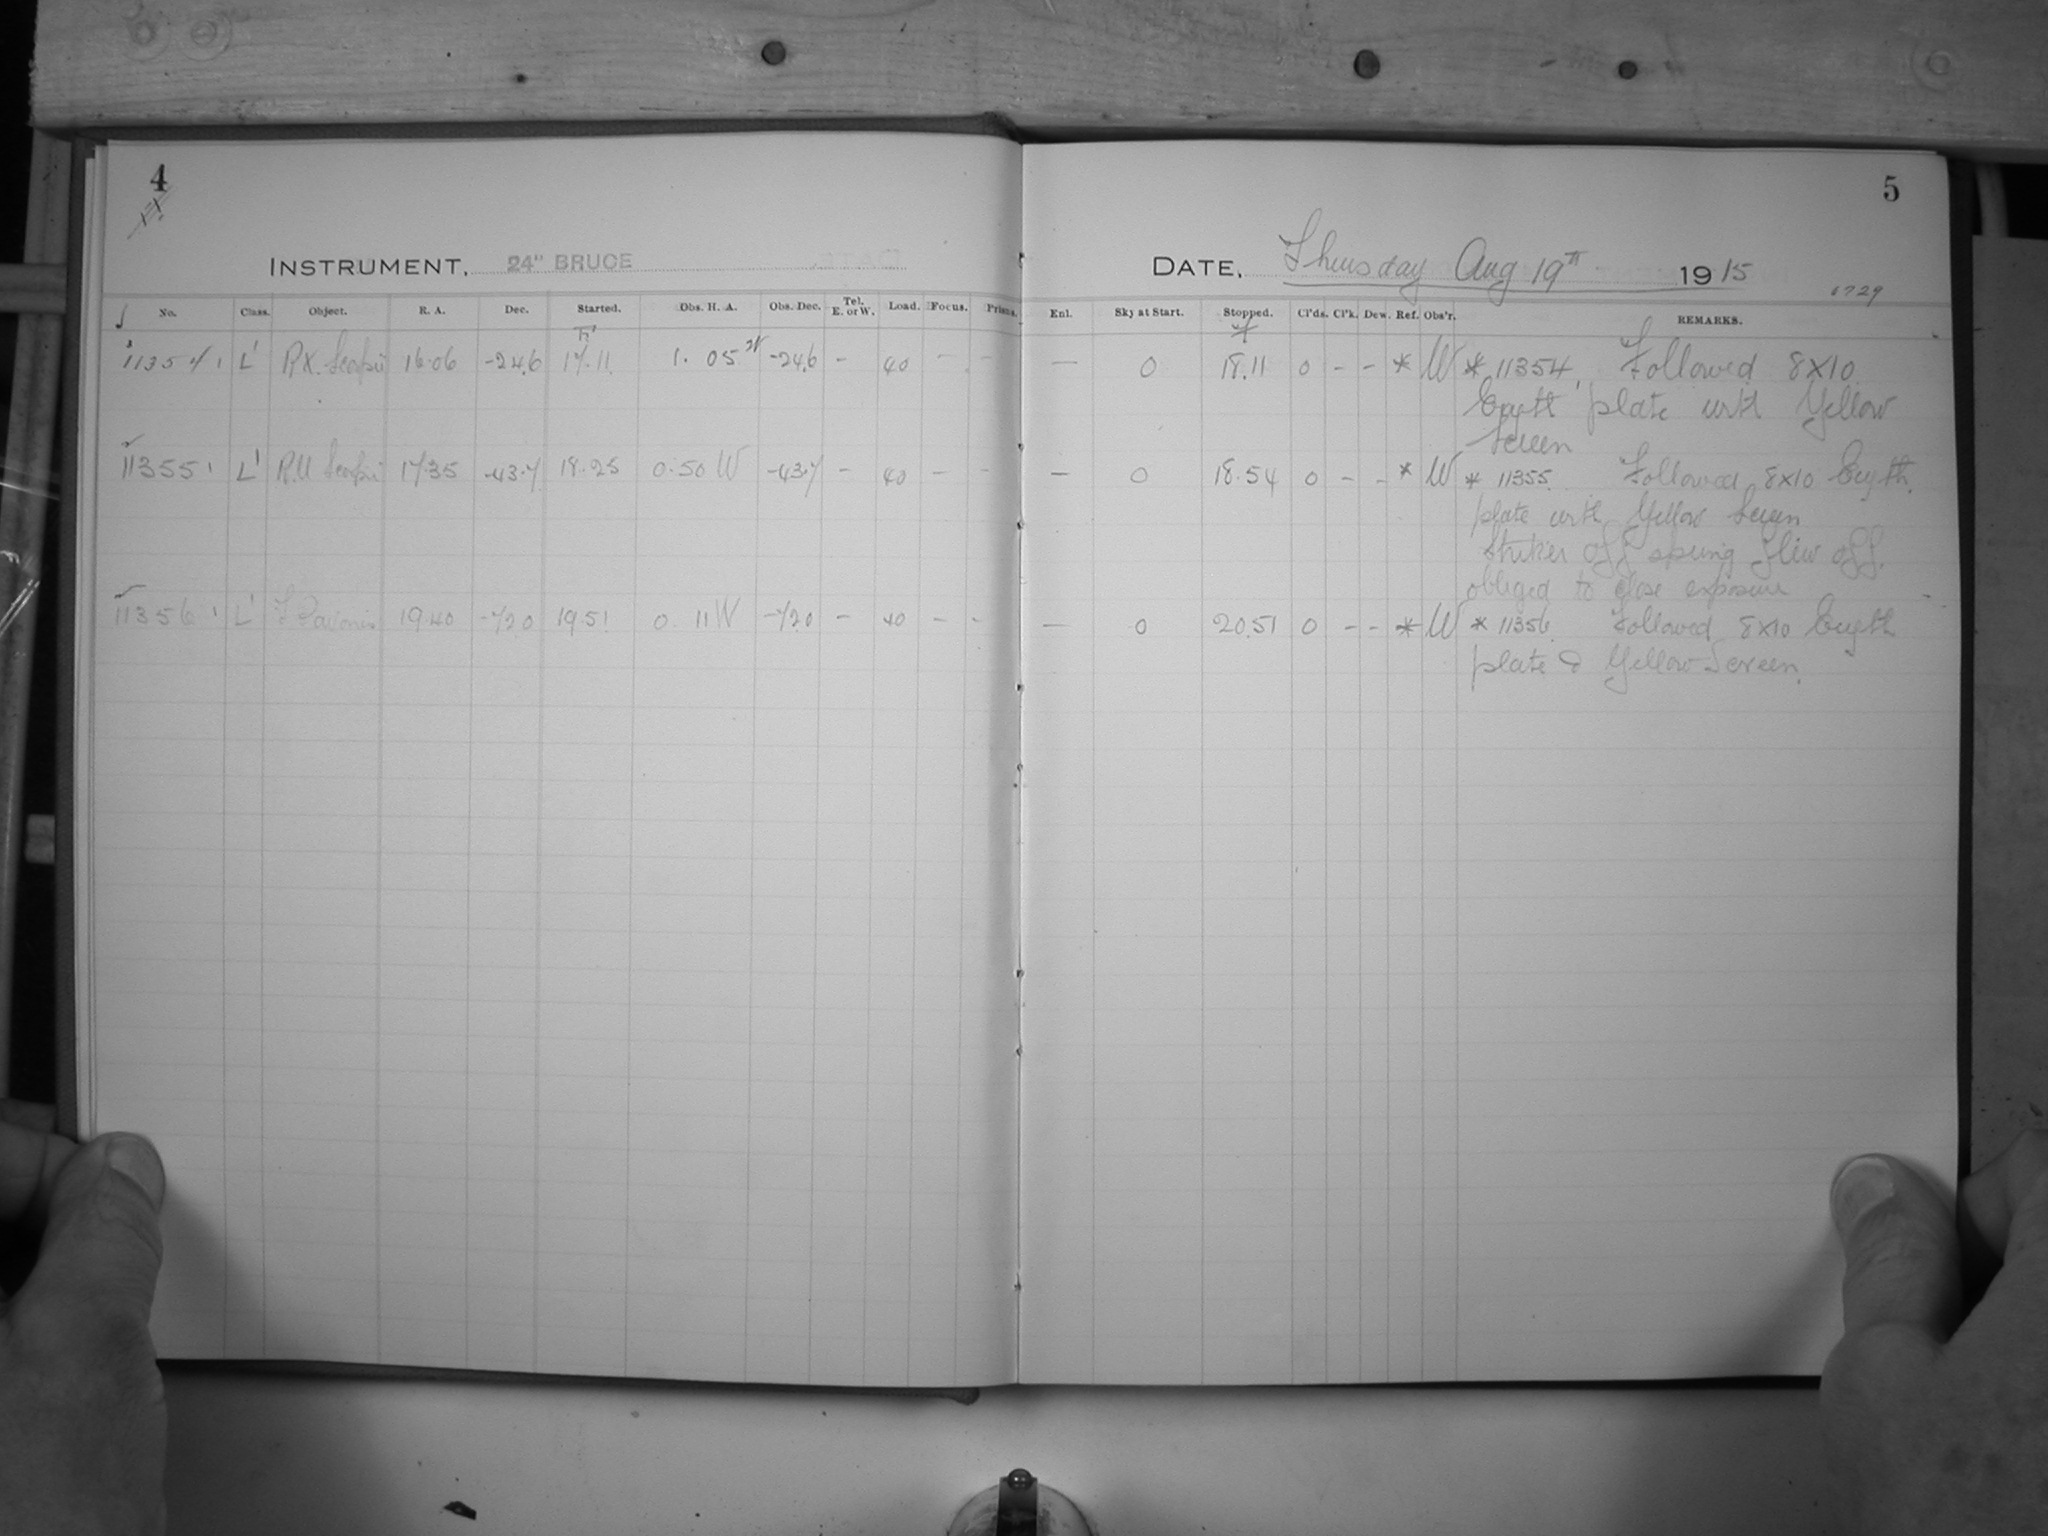 4
5
INSTRUMENT, 24" BRUCE
DATE, Thursday Aug 19th 1915
6729
No. Class. Object. R. A. Dec. Started. Obs. H. A. Obs. Dec. Tel. E. or W. Load. Focus. Prisms. Enl. Sky at Start. Stopped. Cl'ds. Cl'k. Dew. Ref. Obs'r. REMARKS.
11354 L' RX. Scorpii 16.06 -24.6 17.11 1. 05 W -24.6 - 40 - - — 0 18.11 0 - - * W * 11354. Followed 8X10
Eryth plate with Yellow
Screen
11355 L' RU Scorpii 17.35 -43.7 18.25 0.50 W -43.7 - 40 - - — 0 18.54 0 - - * W * 11355. Followed 8X10 Eryth.
plate with Yellow Screen
Striker off spring flew off.
obliged to close exposure
11356 L' T Pavonis 19.40 -72.0 19.51 0. 11 W -72.0 - 40 - - — 0 20.51 0 - - * W * 11356. Followed 8X10 Eryth
plate & Yellow Screen.